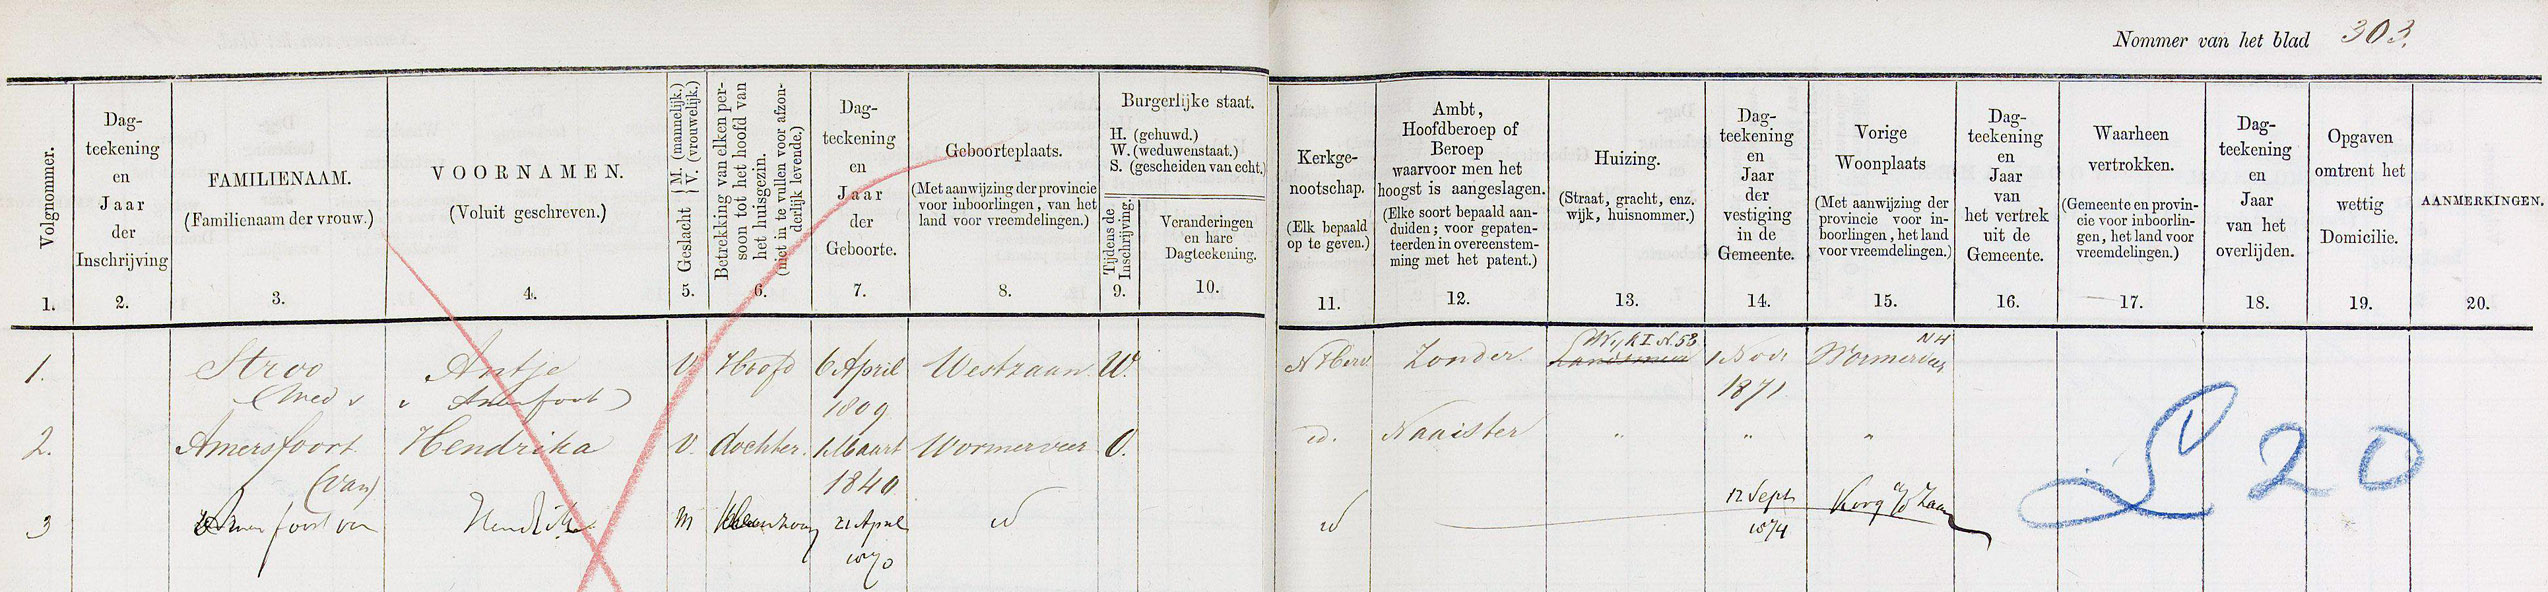 Nommer van het blad 303.
Volgnommer.
1.
Dag-
teekening
en
Jaar
der
Inschrijving
2.
FAMILIENAAM.
(Familienaam der vrouw.)
3.
VOORNAMEN.
(Voluit geschreven.)
4.
Geslacht { M. (mannelijk.)
V. (vrouwelijk.)
5.
Betrekking van elken per-
soon tot het hoofd van
het huisgezin.
(niet in te vullen voor afzon-
derlijk levende.)
6.
Dag-
teekening
en
Jaar
der
Geboorte.
7.
Geboorteplaats.
(Met aanwijzing der provincie
voor inboorlingen, van het
land voor vreemdelingen.)
8.
Burgerlijke staat.
H. (gehuwd.)
W. (weduwenstaat.)
S. (gescheiden van echt.)
Tijdens de
Inschrijving.
9.
Veranderingen
en hare
Dagteekening.
10.
Kerkge-
nootschap.
(Elk bepaald
op te geven.)
11.
Ambt,
Hoofdberoep of
Beroep
waarvoor men het
hoogst is aangeslagen.
(Elke soort bepaald aan-
duiden; voor gepaten-
teerden in overeenstem-
ming met het patent.)
12.
Huizing.
(Straat, gracht, enz.
wijk, huisnommer.)
13.
Dag-
teekening
en
Jaar
der
vestiging
in de
Gemeente.
14.
Vorige
Woonplaats
(Met aanwijzing der
provincie voor in-
boorlingen, het land
voor vreemdelingen.)
15.
Dag-
teekening
en
Jaar
van
het vertrek
uit de
Gemeente.
16.
Waarheen
vertrokken.
(Gemeente en provin-
cie voor inboorlin-
gen, het land voor
vreemdelingen.)
17.
Dag-
teekening
en
Jaar
van het
overlijden.
18.
Opgaven
omtrent het
wettig
Domicilie.
19.
AANMERKINGEN.
20.
1. Stroo Antje V. Hoofd 6 April 1809 Westzaan. W. N Herv. Zonder Wijk I N. 53 1 Nov. 1871 Wormerveer NH
(Wed v Amersfoort)
2. Amersfoort (van) Hendrika V. dochter. 1 Maart 1840 Wormerveer O. id. Naaister " " "
3 Amersfoort van Hendrik m kleinzoon 21 April 1870 id id 12 Sept 1874 Koog a/d Zaan
20